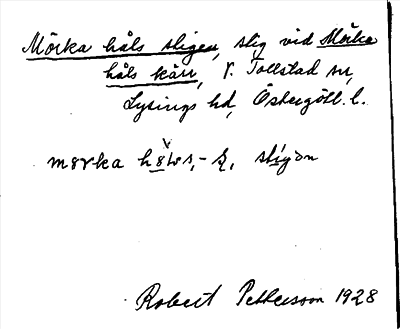 Mörka håls stigen, stig vid Mörka
håls kärr, V. Tollstad sn,
Lysings hd, Östergötl. l.
mørka
Robert Pettersson 1928